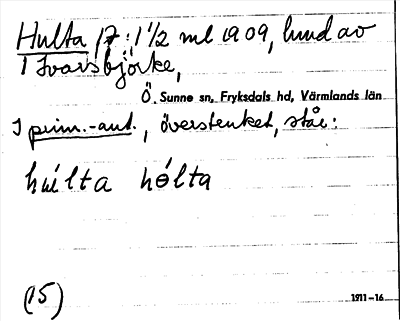 Hulta 17: 1 1/2 ml 1909, lund av
Ivarsbjörke,
Ö. Sunne sn, Fryksdals hd, Värmlands län
I prim.-ant., överstruket, står:
húlta hólta
(15)
1911-16